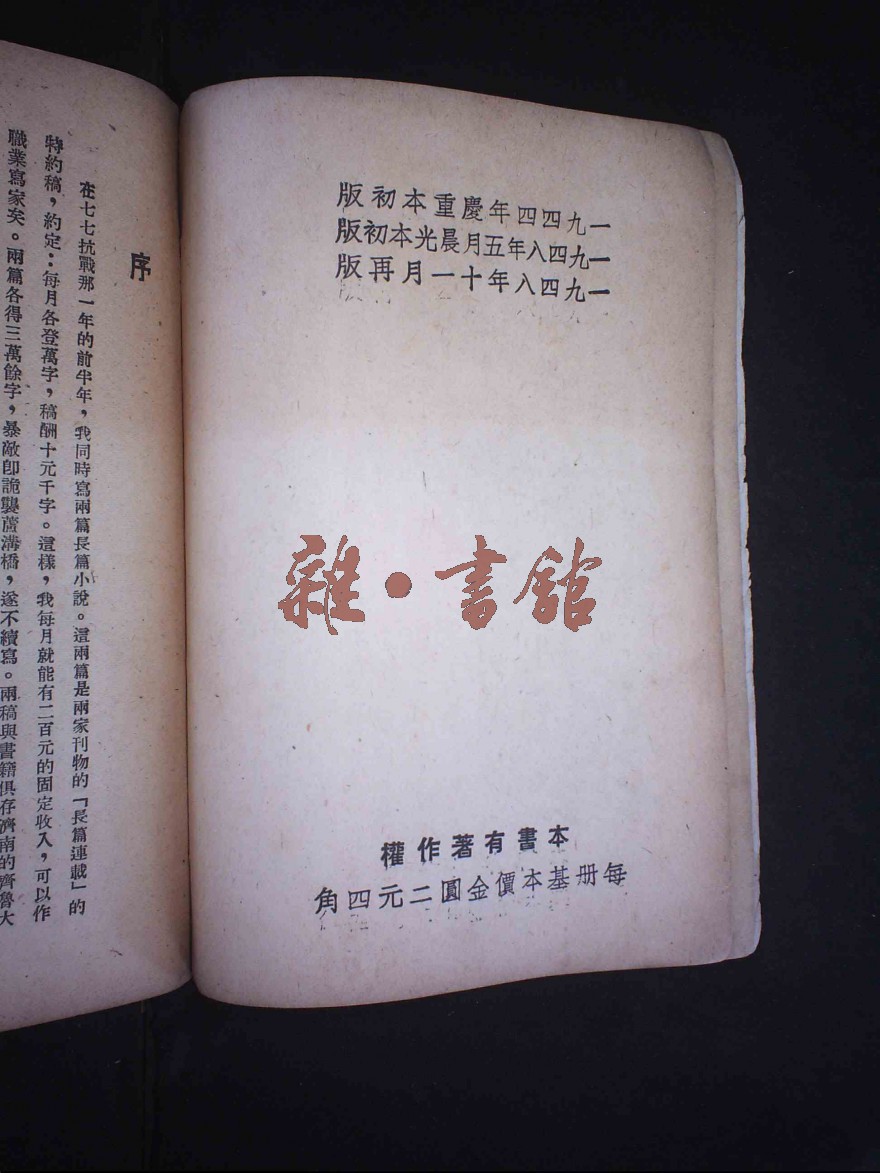 一九四四年慶重本初版
一九四八年五月晨光本初版
一九四八年十一月再版
雜·書館
本書有著作權
每册基本價金圓二元四角
序
在七七抗戰那一年的前半年，我同時寫兩篇長篇小說。這兩篇是兩家刊物的「長篇連載」的
特約稿，約定：每月各登萬字，稿酬十元千字。這樣，我每月就能有二百元的固定收入，可以作
職業寫家矣。兩篇各得三萬餘字，暴敵即詭襲蘆溝橋，遂不續寫。兩稿與書籍俱存濟南的齊魯大